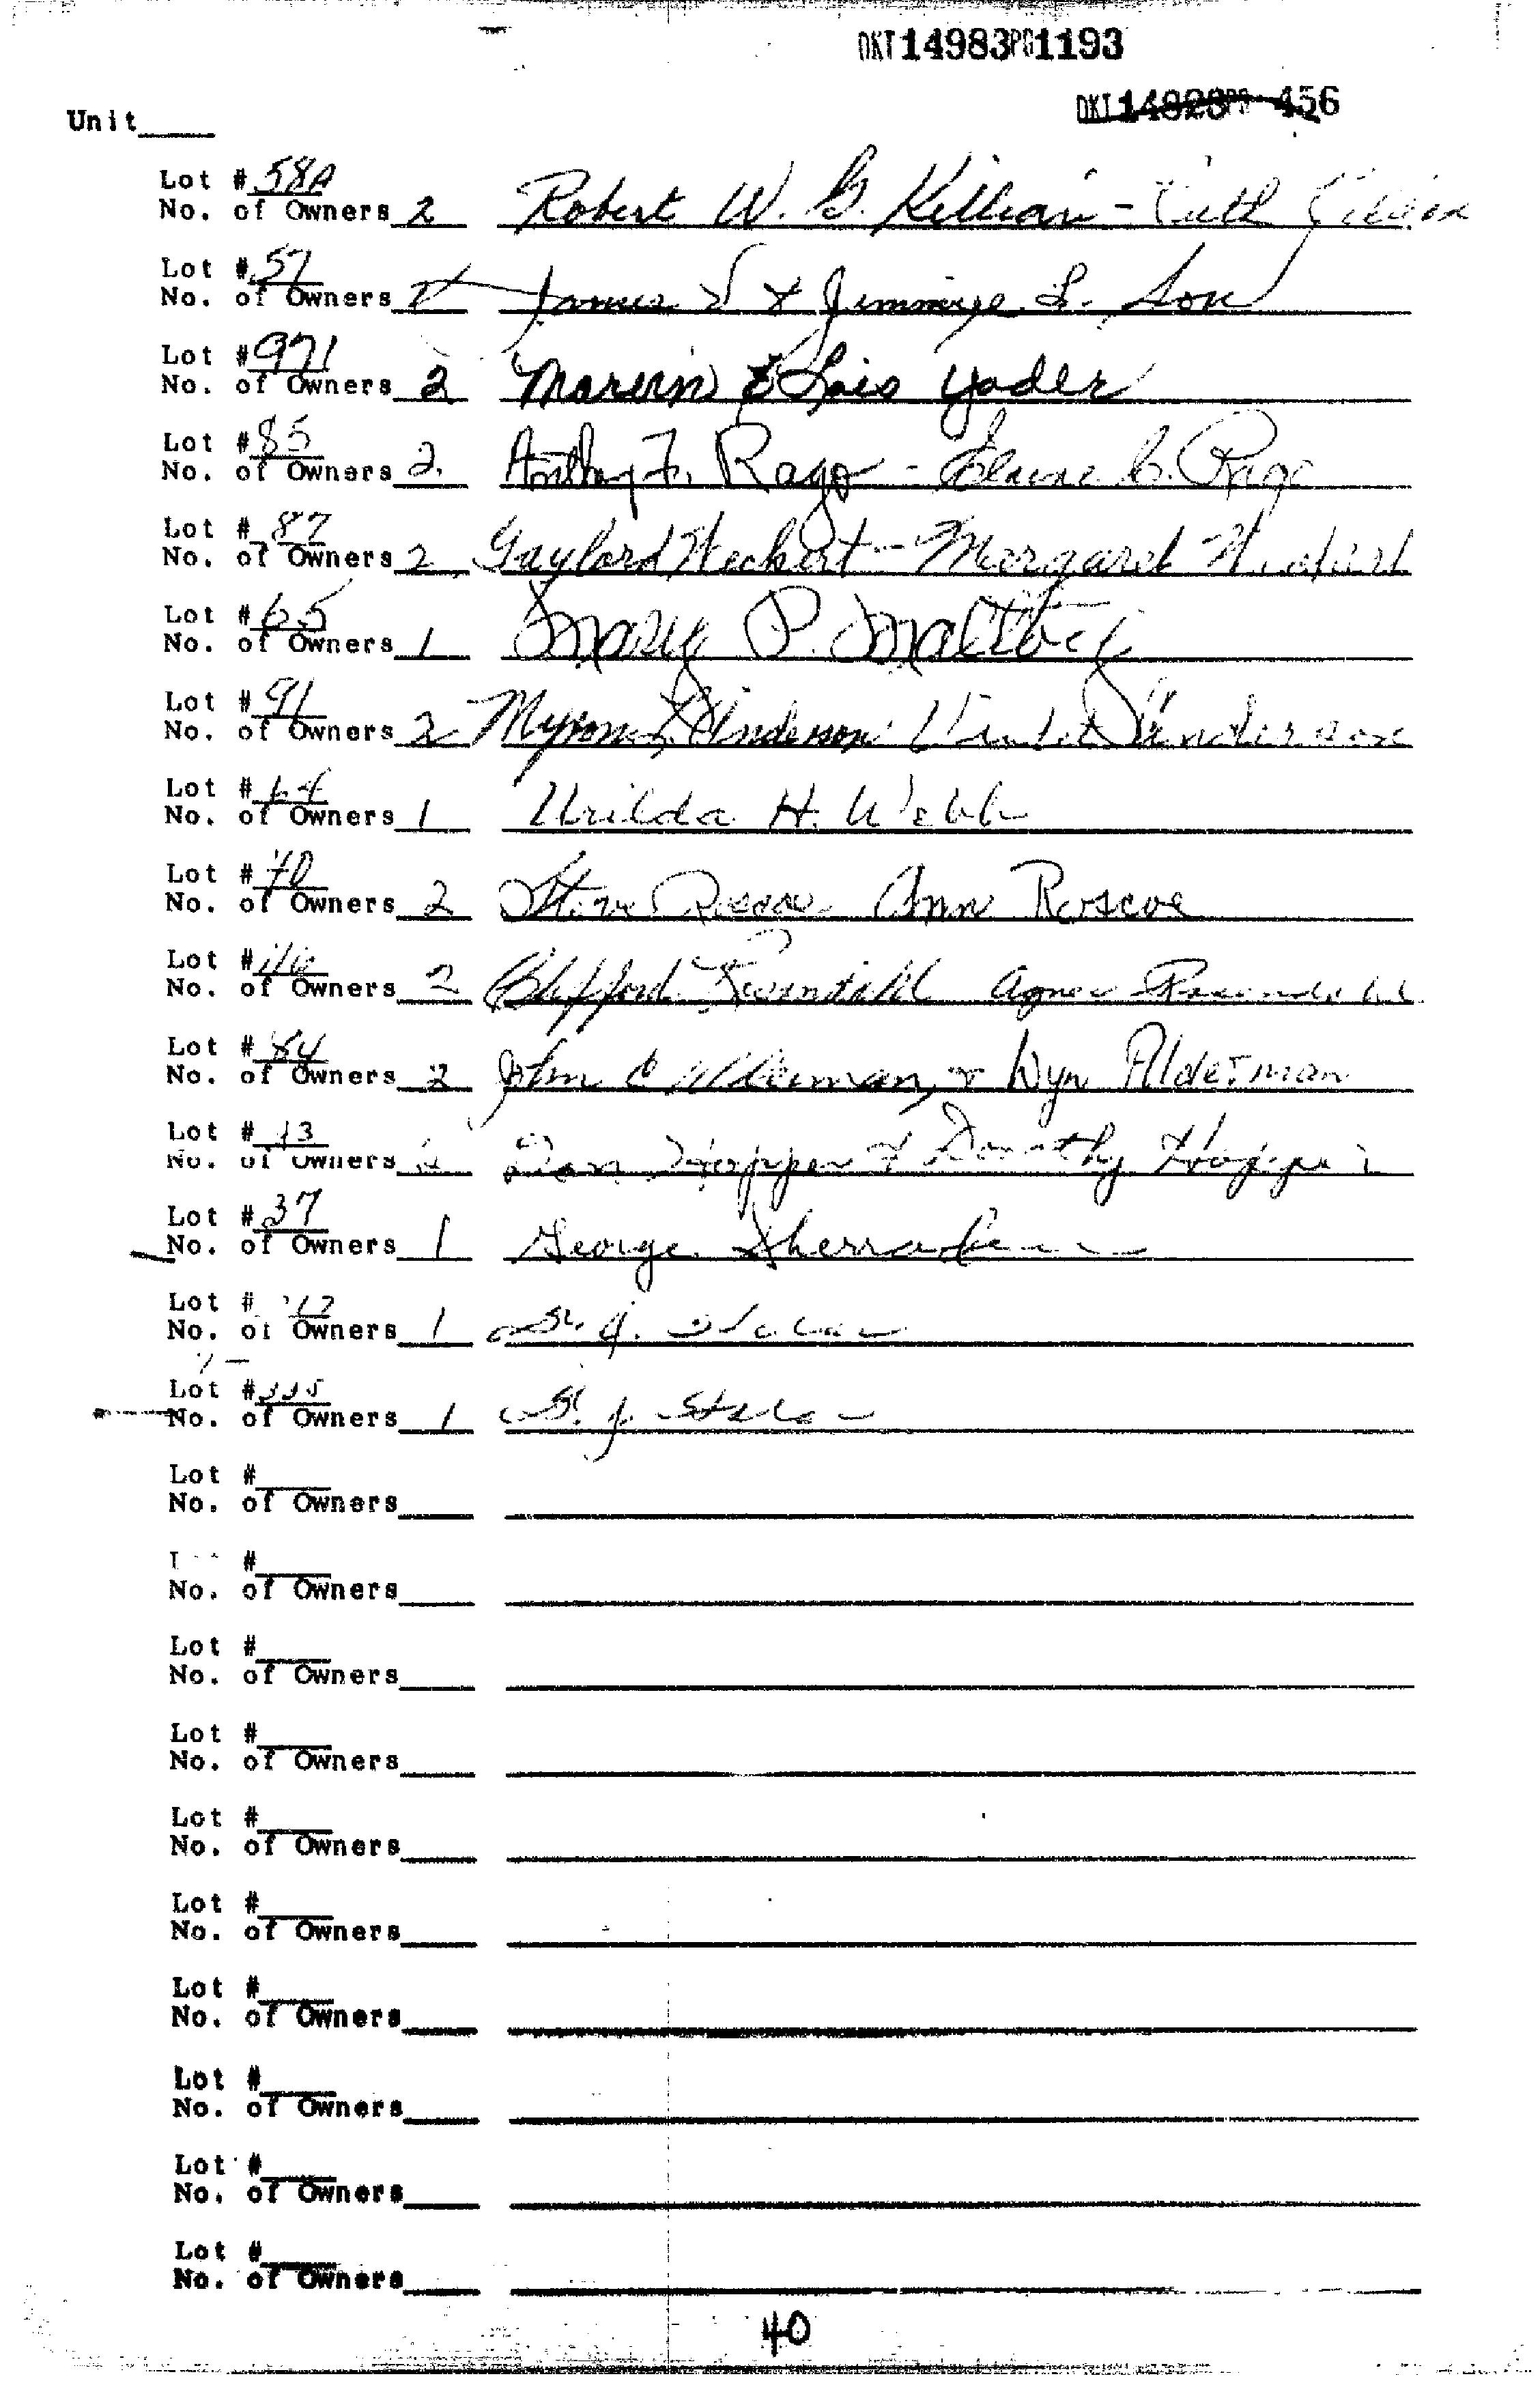 DKT 14983 PG 1193
DKT 14823 PG 456
Unit
Lot # 58A
No. of Owners 2 Robert W. G. Killian - Ruth Killian
Lot # 57
No. of Owners James & Jimmiye L. Son
Lot # 971
No. of Owners 2 Marvin & Lois Yoder
Lot # 85
No. of Owners 2. Anthony F. Rago - Elaine C. Rago
Lot # 87
No. of Owners 2 Gaylord Weckert - Margaret Weckert
Lot # 65
No. of Owners 1 Mary P.
Lot # 91
No. of Owners 2 Myron L. Anderson Violet Anderson
Lot # 64
No. of Owners 1 Urilda H. Webb
Lot # 70
No. of Owners 2 Steve Roscoe Ann Roscoe
Lot #
No. of Owners 2 Clifford Rosendahl Agnes Rosendahl
Lot # 84
No. of Owners 2 John C Alderman, & Wyn Alderman
Lot #
No. of Owners Don Hopper & Dorothy Hopper
Lot # 37
No. of Owners 1 George
Lot #
No. of Owners 1
Lot # 335
No. of Owners 1 S. J.
Lot #
No. of Owners
#
No. of Owners
Lot #
No. of Owners
Lot #
No. of Owners
Lot #
No. of Owners
Lot #
No. of Owners
Lot #
No. of Owners
Lot #
No. of Owners
Lot #
No. of Owners
Lot #
No. of Owners
40